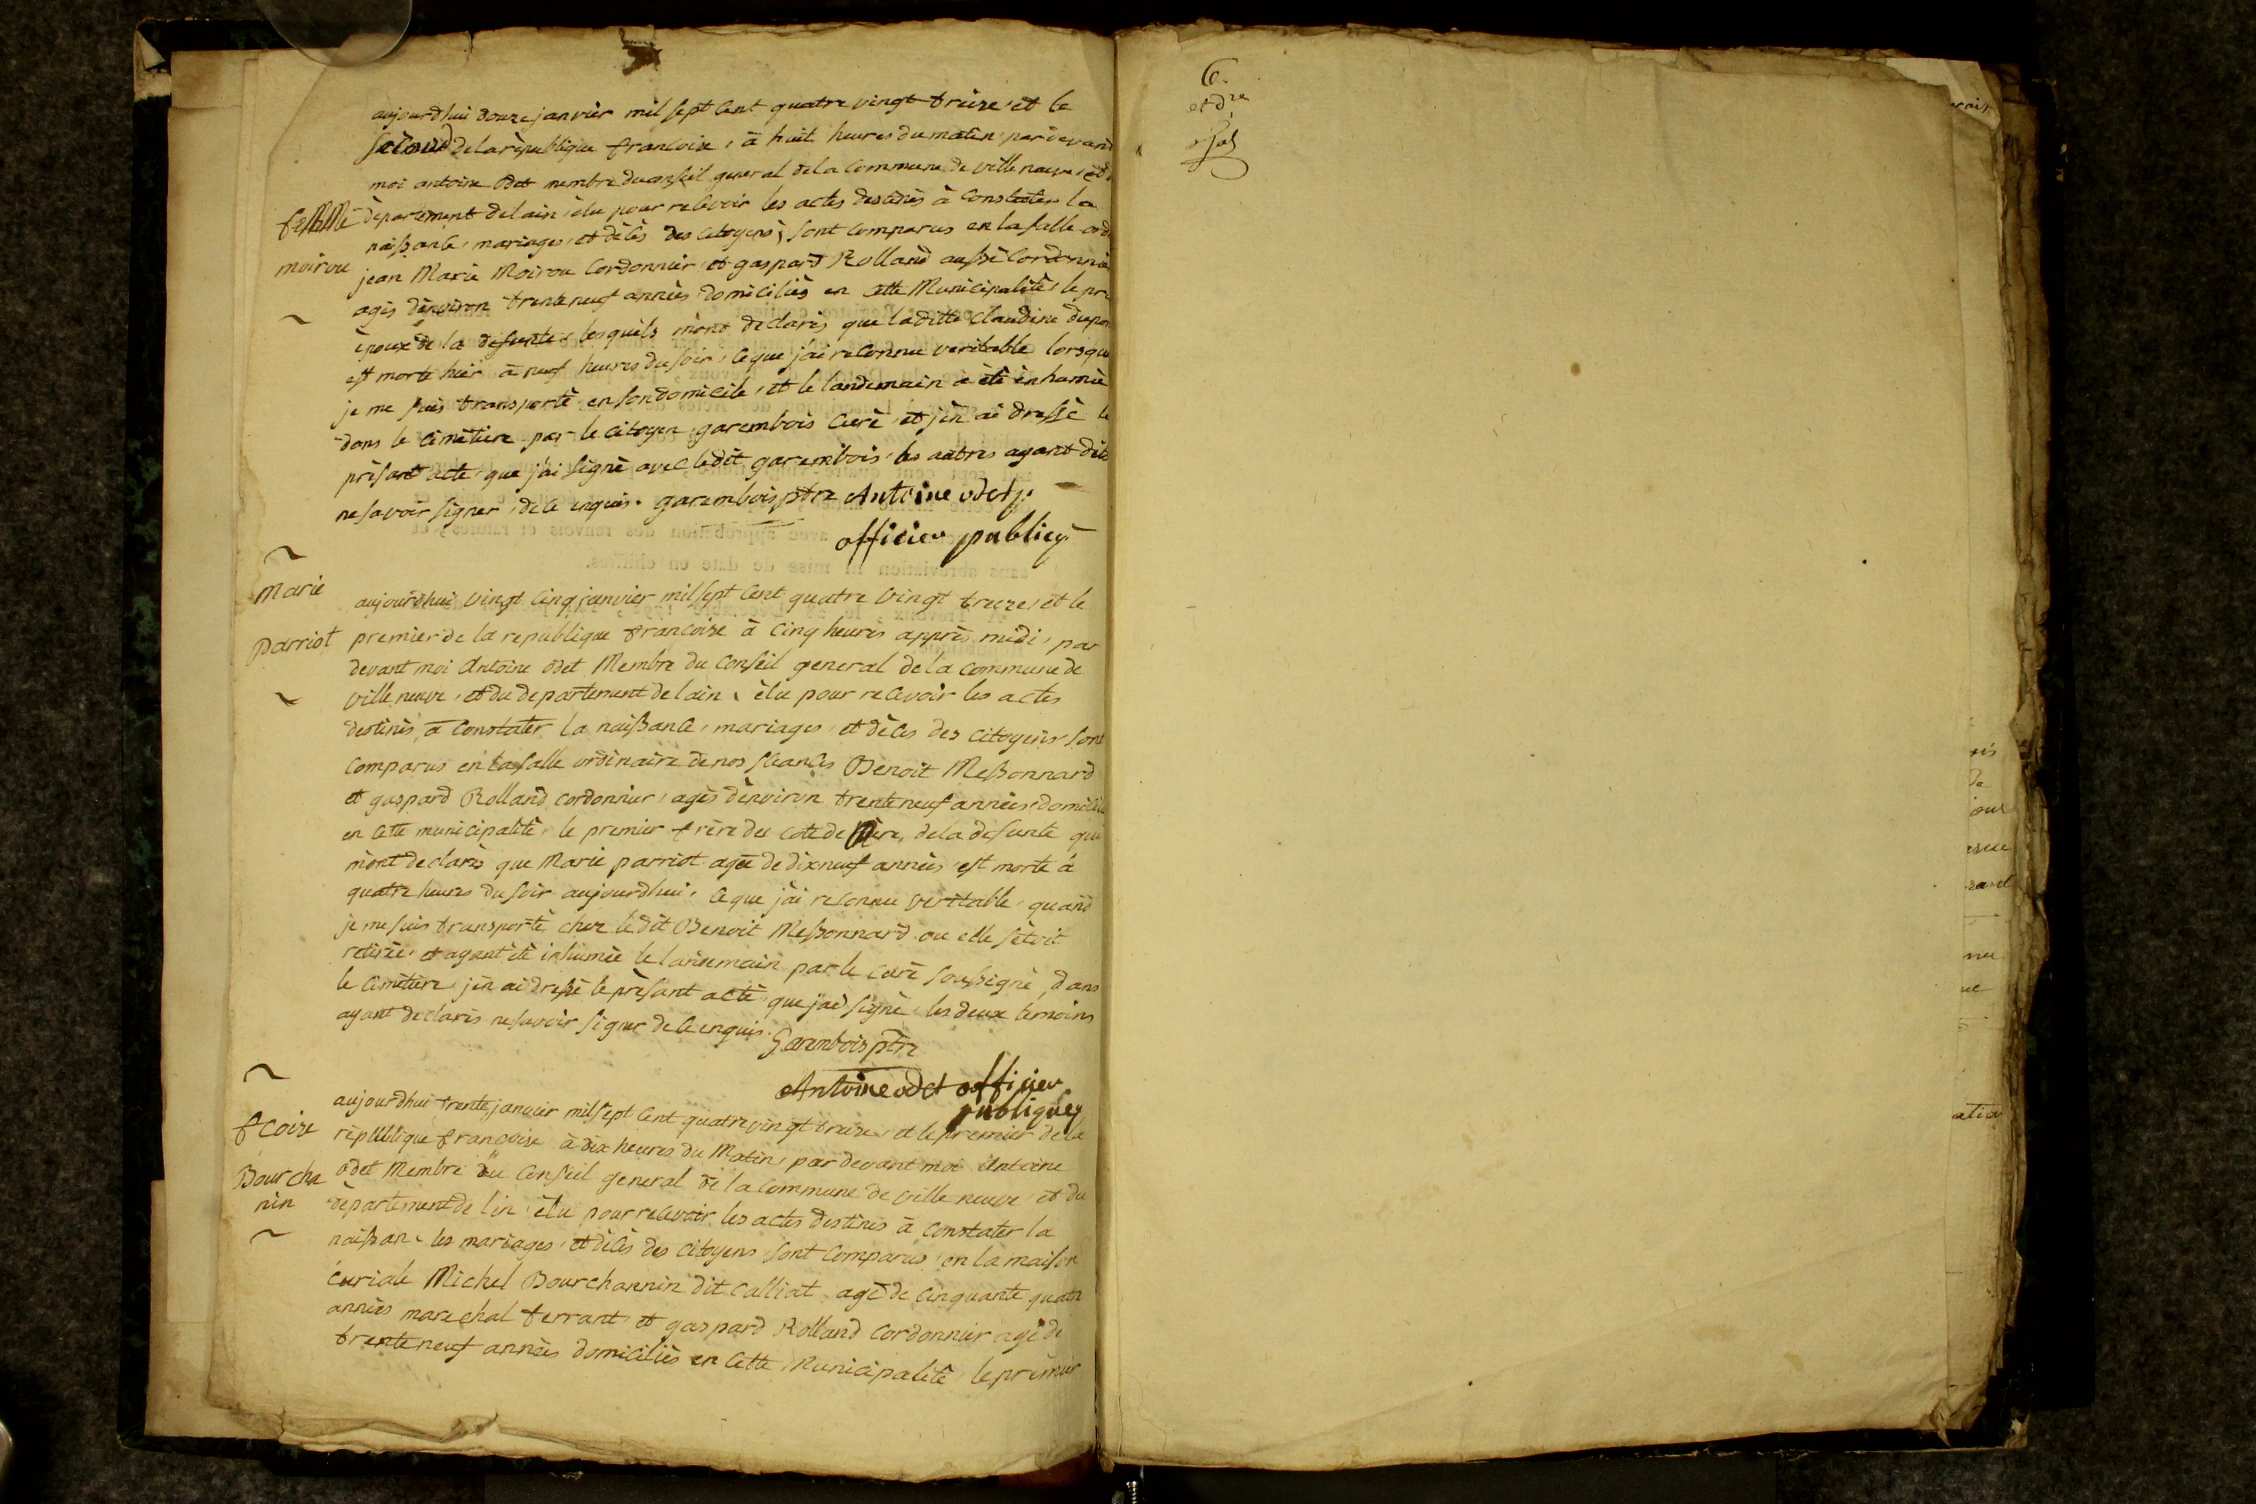 aujourdhui douze janvier mil sept Cent quatre vingt treize, et le
second de la rèpublique francoise, à huit heures du matin, par devand
moi antoine odet membre du conseil general de la Commune de ville neuve, et d
fémme
dèpartement de lain, èlu pour recevoir les actes destinès à Constater la
naissance, mariages, et dècès des citoyens, sont comparus en la salle ord
moirou
jean Marie Moirou Cordonnier, et gaspard Rolland aussi Cordonnie
agès dènviron trente neuf annèes domiciliès en cette Municipalitè, le pre
èpoux de la defunte, lesquels mònt declarès que laditte Claudine dupon
est morte hier à neuf heures du soir, ce que jai reconnu veritable lorsque
je me suis transportè en son domicile, et le landemain a ètè inhumèe
dans le cimètiere par le citoyen garembois Curè, et jèn ai dressè le
prèsant acte, que jài signè avec ledit garembois, les autres ayant dèc
ne savoir signer, de ce enquis. garembois ptre Antoine odet
officier public
Marie
parriot
aujourdhui vingt cinq janvier mil sept Cent quatre vingt treize, et le
premier de la republique francoise à cinq heures apprès midi, par
devant moi Antoine odet Membre du Conseil general de la Commune de
ville neuve, et du departement de lain, èlu pour recevoir les actes
destinès, à Constater, la naissance, mariages, et dècès des citoyens sont
Comparus en la salle ordinaire de nos seances Benoit Messonnard
et gaspard Rolland cordonnier, agès dènviron trente neuf annèes, domicilie
en cette municipalitè, le premier frère du cotè de Mère, de la defunte qui
mònt declarès que Marie parriot agèe de dix neuf annèes est morte à
quatre heures du soir aujourdhui, ce que jài reconnu veritable, quand
je me suis transportè chez le dit Benoit Messonnard ou elle sètoit
retirèe, et ayant ètè inhumèe le landemain par le curè soussignè, dans
le Cimètiere, jèn ai dressè le prèsant acte, que jai signè, les deux temoins
ayant declarès ne savoir signer de ce enquis.
Garembois ptre
Antoine odet officier
publique
fcoise
Bourcha
nin
aujourdhui trente janvier mil sept Cent quatre vingt treize, et le premier de la
rèpublique francoise à dix heures du Matin, par devant moi Antoine
odet Membre du Conseil general de la Commune de ville neuve, et du
dèpartement de lin èlu pour recevoir les actes destinès à constater la
naissan, les mariages, et dècès des citoyens, sont Comparus en la maison
curiale Michel Bourchannin dit Calliat agè de cinquante quatr
annèes marechal ferrant, et gaspard Rolland Cordonnier agè de
trente neuf annèes domiciliès en Cette Municipalitè, le premier
6.